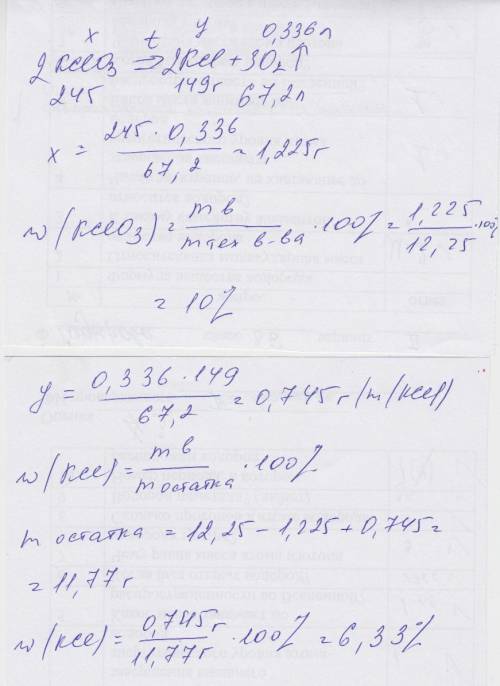 x t y 0,336л
2KClO3 => 2KCl + 3O2↑
245 149г 67,2л
x = 245 · 0,336 / 67,2 = 1,225г
w(KClO3) = m в / m исх в-ва · 100% = 1,225 / 12,25 · 100%
= 10%
y = 0,336 · 149 / 67,2 = 0,745г (m(KCl)
w(KCl) = m в / m остатка · 100%
m остатка = 12,25 - 1,225 + 0,745 =
= 11,77г
w(KCl) = 0,745г / 11,77г · 100% = 6,33%